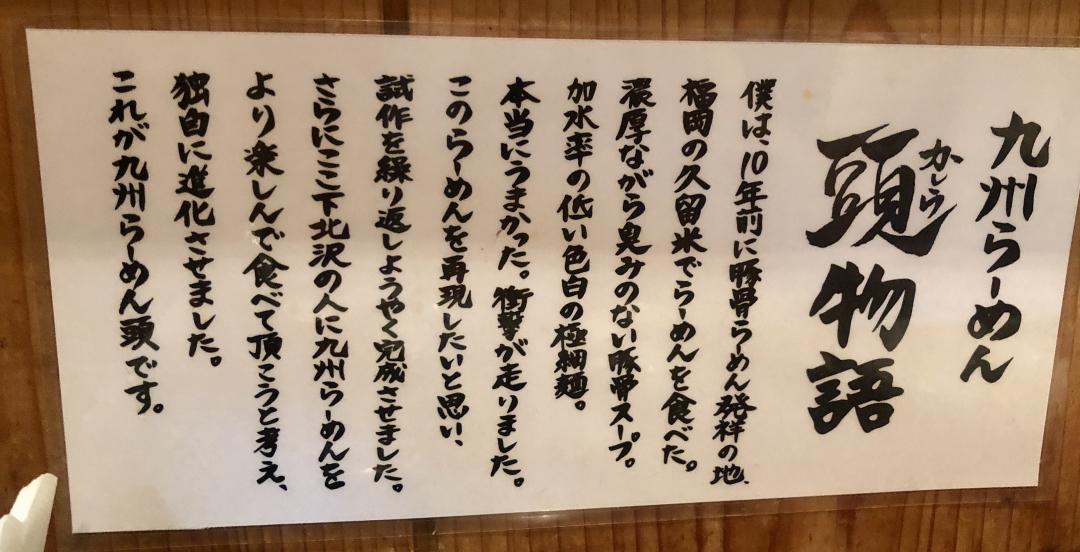 九州らーめん
頭物語
かしら
僕は、10年前に豚骨らーめん発祥の地、
福岡の久留米でらーめんを食べた。
濃厚ながら臭みのない豚骨スープ。
加水率の低い色白の極細麺。
本当にうまかった。衝撃が走りました。
このらーめんを再現したいと思い、
試作を繰り返しようやく完成させました。
さらにここ下北沢の人に九州らーめんを
より楽しんで食べて頂こうと考え、
独自に進化させました。
これが九州らーめん頭です。